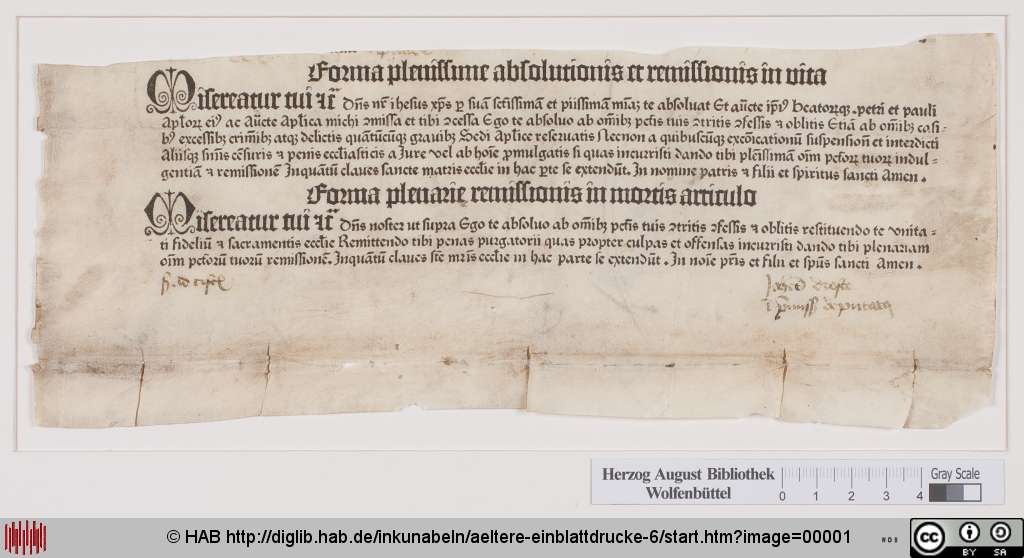 Forma plenissime absolutionis et remissionis in vita
Misereatur tui ⁊c̄ Dn̄s nr̄ ihesus xp̄s ꝑ suā sctīssimā et piissimā mīaꝫ te absoluat Et auc̄te ip̄iꝰ beatorꝙꝫ petri et pauli
Apl̄oꝝ eiꝰ ac Auc̄te Apl̄ica michi ꝯmissa et tibi ꝯcessa Ego te absoluo ab om̄ibꝫ pctīs tuis ꝯtritis ꝯfessis ⁊ oblitis Etiā ab om̄ibꝫ casi-
bꝰ excessibꝫ crim̄ibꝫ atqꝫ delictis quātūcūqꝫ grauibꝫ Sedi Apl̄ice reseruatis Necnon a quibuscūqꝫ excōicationū suspensionū et interdicti
Aliisqꝫ sn̄iis cēsuris ⁊ penis eccl̄iasticis a Jure vel ab hoīe ꝓmulgatis si quas incurristi dando tibi plen̄issimā oīm pctōꝝ tuoꝝ indul-
gentiā ⁊ remissionē Inquātū claues sancte matris eccl̄ie in hac ꝑte se extendūt. In nomine patris ⁊ filii et spiritus sancti Amen.
Forma plenarie remissionis in mortis articulo
Misereatur tui ⁊c̄ Dn̄s noster ut supra Ego te absoluo ab om̄ibꝫ pctīs tuis ꝯtritis ꝯfessis ⁊ oblitis restituendo te vnita-
ti fideliū ⁊ sacramentis eccl̄ie Remittendo tibi penas purgatorii quas propter culpas et offensas incurristi dando tibi plenariam
oīm pctōrū tuorū remissionē. Inquātū claues stē mr̄is eccl̄ie in hac parte se extendūt. In noīe pr̄is et filii et sp̄us sancti Amen.
Herzog August Bibliothek
Wolfenbüttel
0 1 2 3 4
Gray Scale
© HAB http://diglib.hab.de/inkunabeln/aeltere-einblattdrucke-6/start.htm?image=00001
WOB
cc BY SA